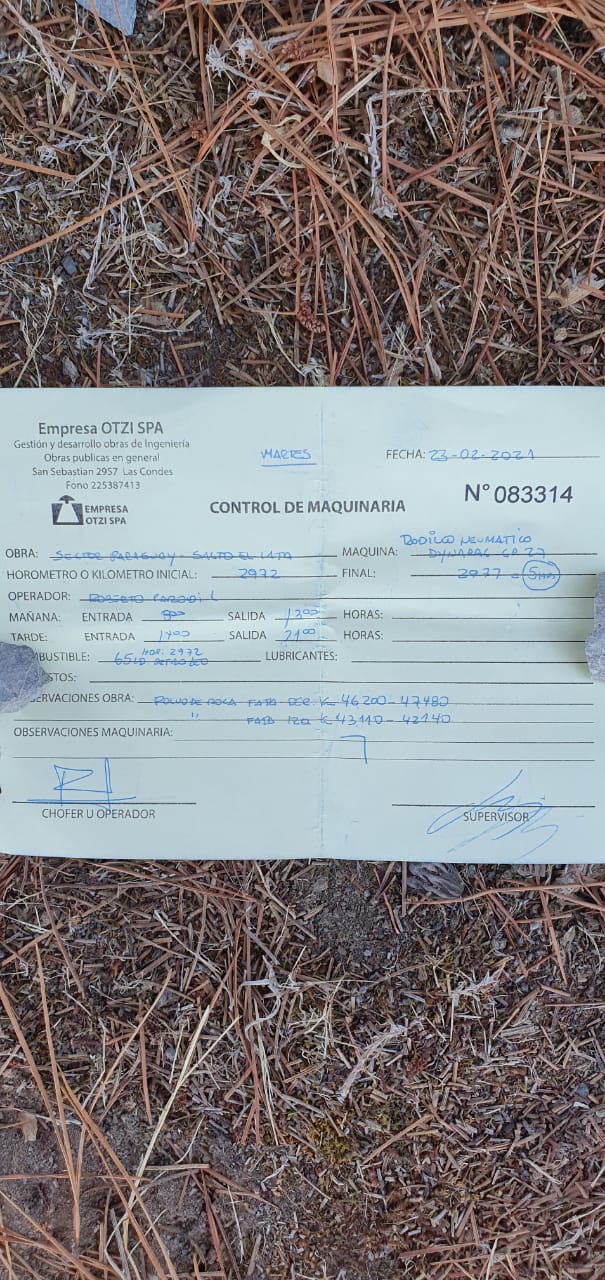 Empresa OTZI SPA
Gestión y desarrollo obras de Ingeniería
Obras publicas en general
San Sebastian 2957 Las Condes
Fono 225387413
EMPRESA
OTZI SPA
MARTES
FECHA: 23-02-2021
N° 083314
CONTROL DE MAQUINARIA
OBRA: SECTOR PARAGUAY - SALTO EL LAJA
MAQUINA: RODILLO NEUMATICO
DYNAPAC CP 27
HOROMETRO O KILOMETRO INICIAL: 2972
FINAL: 2977 = 5 HRS
OPERADOR: ROBERTO PARODI L
MAÑANA: ENTRADA 8⁰⁰ SALIDA 13⁰⁰ HORAS:
TARDE: ENTRADA 14⁰⁰ SALIDA 21⁰⁰ HORAS:
MBUSTIBLE: HOR: 2972
65 LD. PETROLEO
LUBRICANTES:
STOS:
ERVACIONES OBRA: POLVO DE ROCA FAJA DER K 46200 - 47480
" FAJA IZQ K 43110 - 42140
OBSERVACIONES MAQUINARIA:
CHOFER U OPERADOR
SUPERVISOR